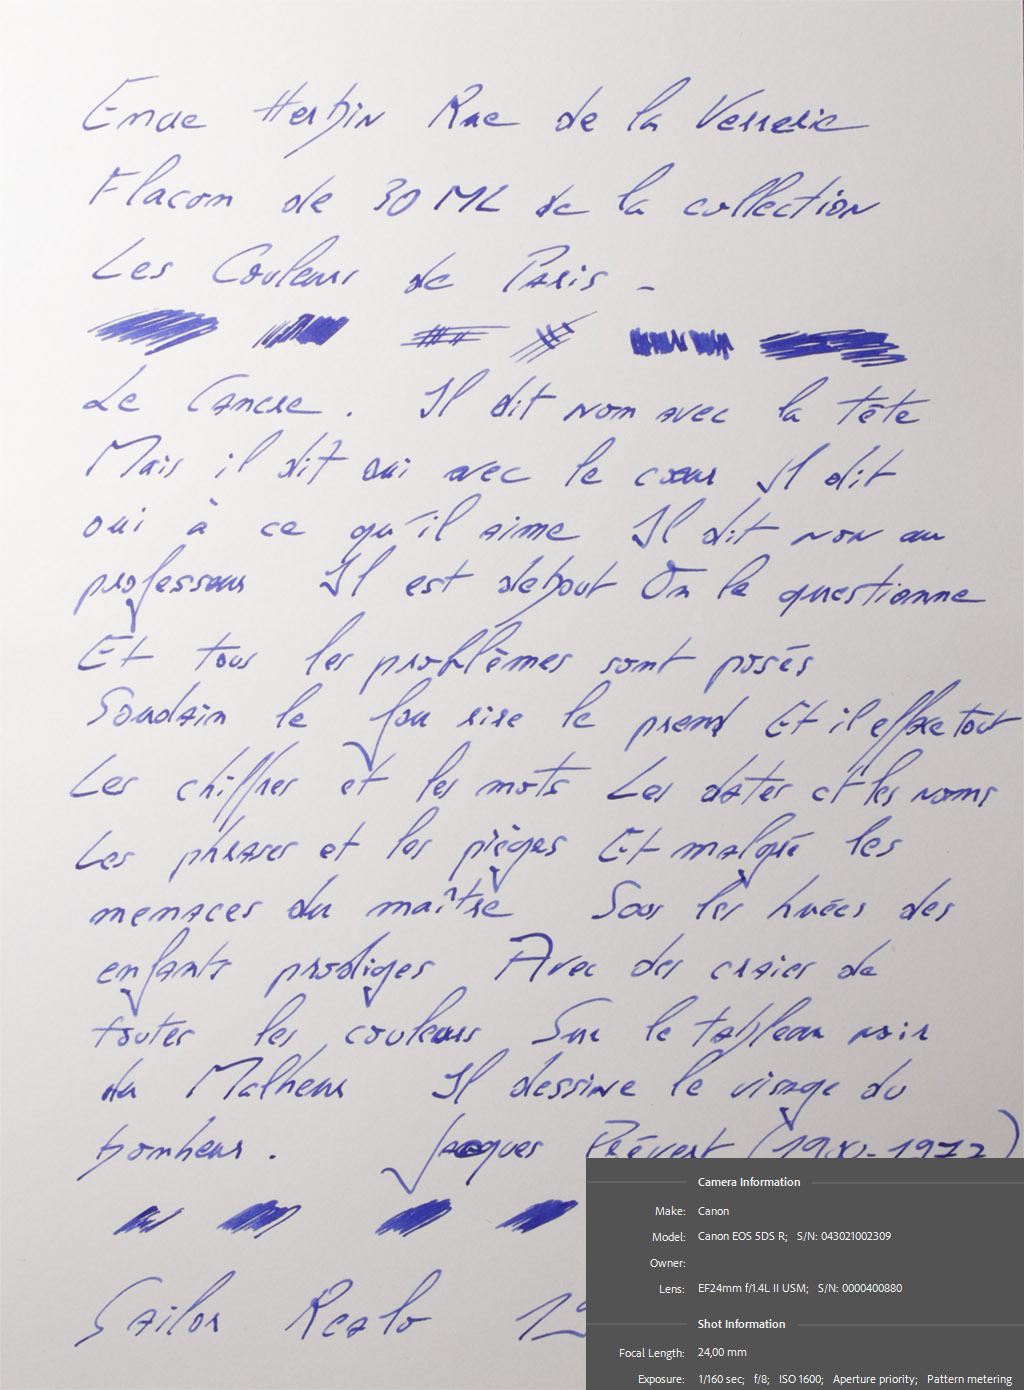 Encre Herbin Rue de la Verrerie
Flacon de 30 ML de la collection
Les Couleurs de Paris -
Le Cancre. Il dit non avec la tête
Mais il dit oui avec le cœur Il dit
oui à ce qu'il aime Il dit non au
professeur Il est debout On le questionne
Et tous les problèmes sont posés
Soudain le fou rire le prend Et il efface tout
Les chiffres et les mots Les dates et les noms
Les phrases et les pièges Et malgré les
menaces du maître Sous les huées des
enfants prodiges Avec des craies de
toutes les couleurs Sur le tableau noir
du Malheur Il dessine le visage du
bonheur. Jacques Prévert (1900-1977)
Sailor Realo
Camera Information
Make: Canon
Model: Canon EOS 5DS R; S/N: 043021002309
Owner:
Lens: EF24mm f/1.4L II USM; S/N: 0000400880
Shot Information
Focal Length: 24,00 mm
Exposure: 1/160 sec; f/8; ISO 1600; Aperture priority; Pattern metering